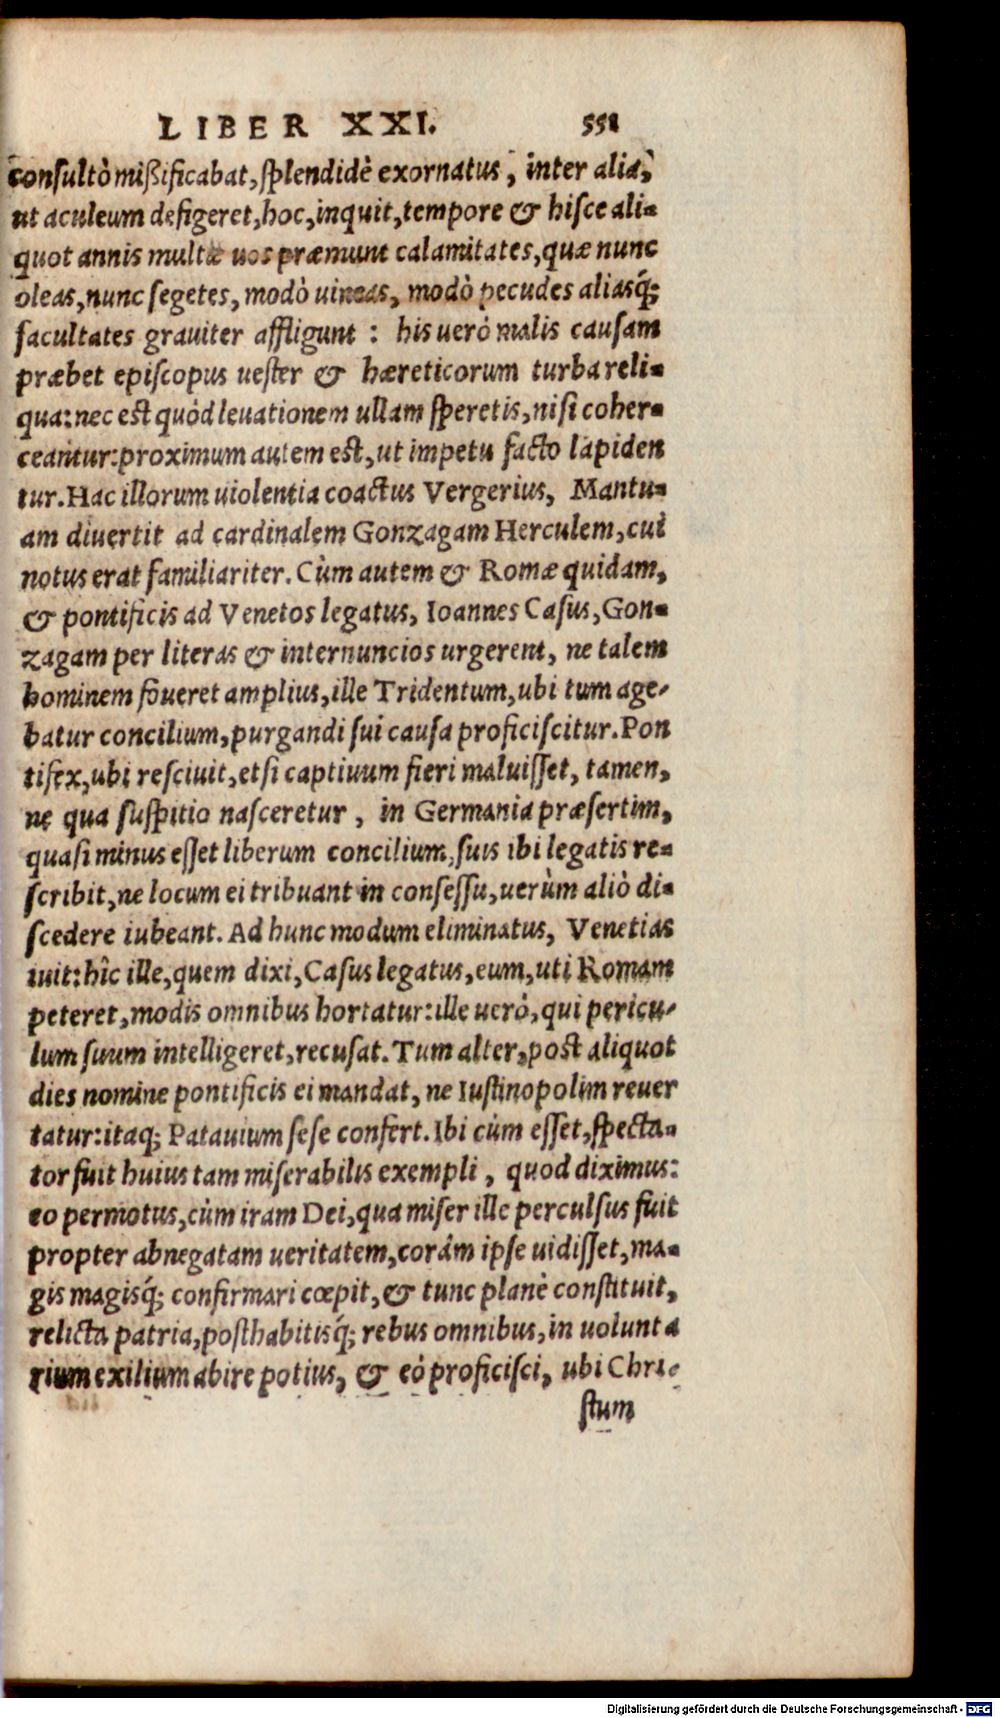 LIBER XXI. 551
consultò mißificabat, splendidè exornatus, inter alia,
ut aculeum defigeret, hoc, inquit, tempore & hisce ali-
quot annis multæ uos præmunt calamitates, quæ nunc
oleas, nunc segetes, modò uineas, modò pecudes aliasq́;
facultates grauiter affligunt : his uerò malis causam
præbet episcopus uester & hæreticorum turba reli-
qua: nec est quòd leuationem ullam speretis, nisi coher-
ceantur: proximum autem est, ut impetu facto lapiden
tur. Hac illorum uiolentia coactus Vergerius, Mantu-
am diuertit ad cardinalem Gonzagam Herculem, cui
notus erat familiariter. Cùm autem & Romæ quidam,
& pontificis ad Venetos legatus, Ioannes Casus, Gon-
zagam per literas & internuncios urgerent, ne talem
hominem foueret amplius, ille Tridentum, ubi tum age-
batur concilium, purgandi sui causa proficiscitur. Pon
tifex, ubi resciuit, etsi captiuum fieri maluisset, tamen,
ne qua suspitio nasceretur, in Germania præsertim,
quasi minus esset liberum concilium, suis ibi legatis re-
scribit, ne locum ei tribuant in consessu, uerùm aliò di-
scedere iubeant. Ad hunc modum eliminatus, Venetias
iuit: hîc ille, quem dixi, Casus legatus, eum, uti Romam
peteret, modis omnibus hortatur: ille uerò, qui pericu-
lum suum intelligeret, recusat. Tum alter, post aliquot
dies nomine pontificis ei mandat, ne Iustinopolim reuer
tatur: itaq; Patauium sese confert. Ibi cùm esset, specta-
tor fuit huius tam miserabilis exempli, quod diximus:
eo permotus, cùm iram Dei, qua miser ille perculsus fuit
propter abnegatam ueritatem, coràm ipse uidisset, ma-
gis magisq́; confirmari cœpit, & tunc planè constituit,
relicta patria, posthabitisq́; rebus omnibus, in uolunta
rium exilium abire potius, & eò proficisci, ubi Chri-
stum
Digitalisierung gefördert durch die Deutsche Forschungsgemeinschaft - DFG